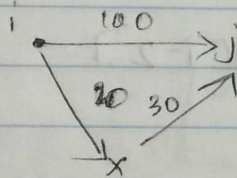 i
100
J
20 30
x